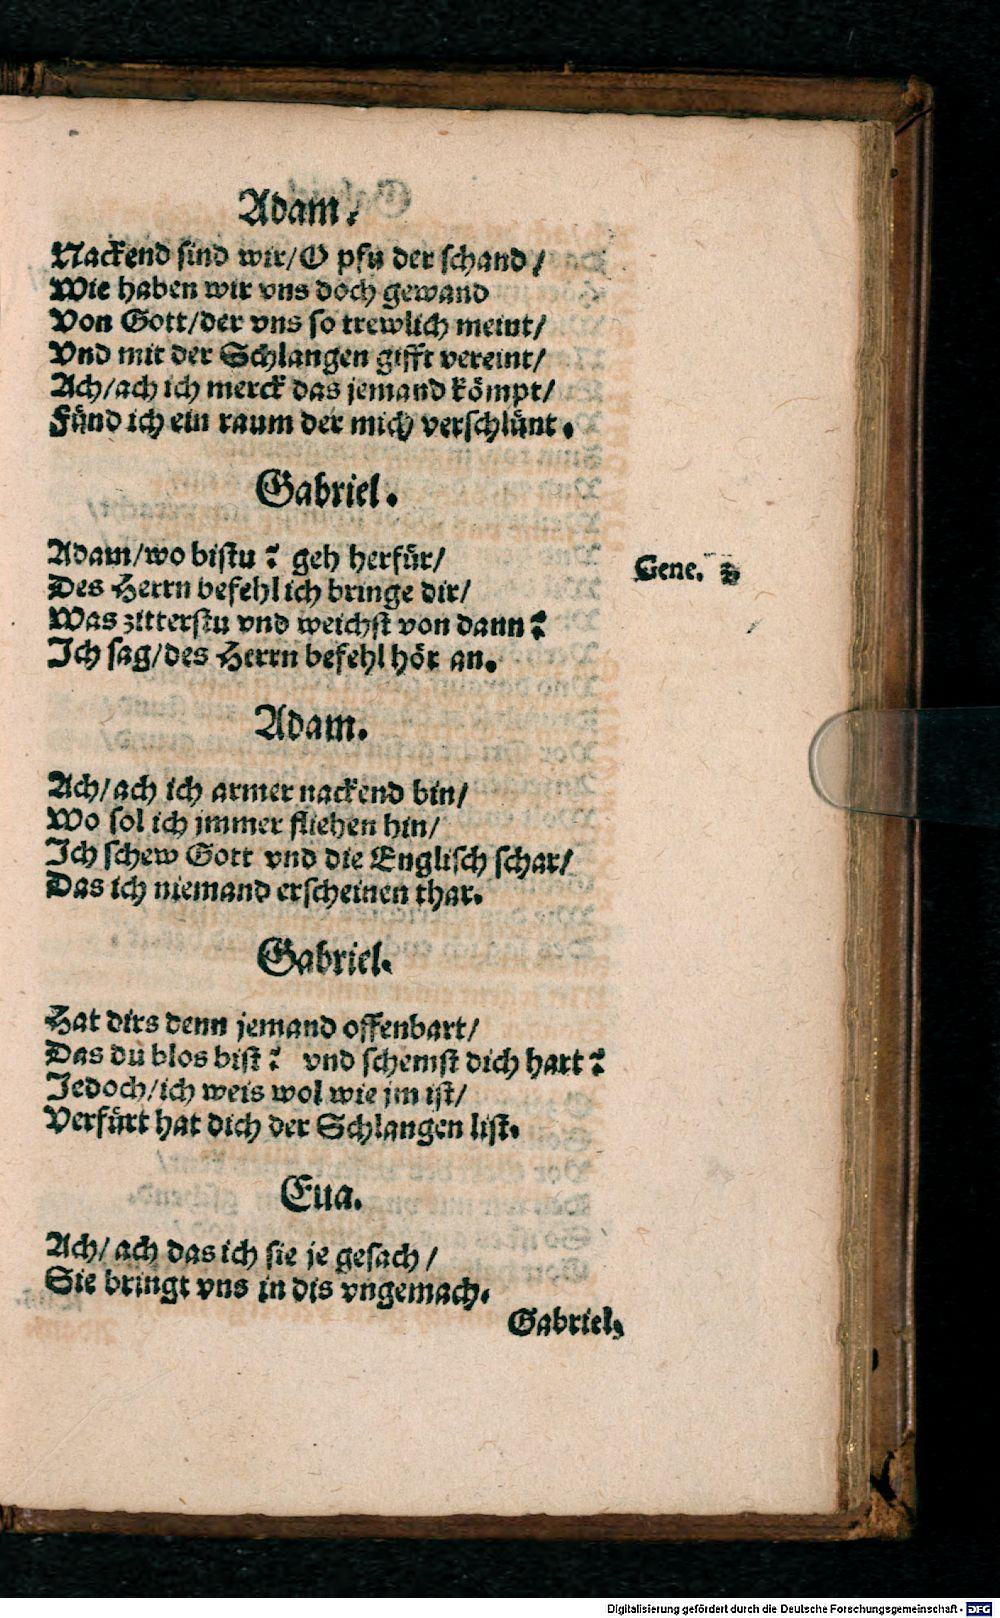 Adam.
Nackend sind wir/ O pfu der schand/
Wie haben wir vns doch gewand
Von Gott/ der vns so trewlich meint/
Vnd mit der Schlangen gifft vereint/
Ach/ ach ich merck das jemand kömpt/
Fünd ich ein raum der mich verschlünt.
Gabriel.
Adam/ wo bistu? geh herfür/
Des Herrn befehl ich bringe dir/
Gene. 3
Was zitterstu vnd weichst von dann?
Ich sag/ des Herrn befehl hör an.
Adam.
Ach/ ach ich armer nackend bin/
Wo sol ich jmmer fliehen hin/
Ich schew Gott vnd die Englisch schar/
Das ich niemand erscheinen thar.
Gabriel.
Hat dirs denn jemand offenbart/
Das du blos bist? vnd schemst dich hart?
Jedoch/ ich weis wol wie jm ist/
Verfürt hat dich der Schlangen list.
Eua.
Ach/ ach das ich sie je gesach/
Sie bringt vns in dis vngemach.
Gabriel.
Digitalisierung gefördert durch die Deutsche Forschungsgemeinschaft - DFG